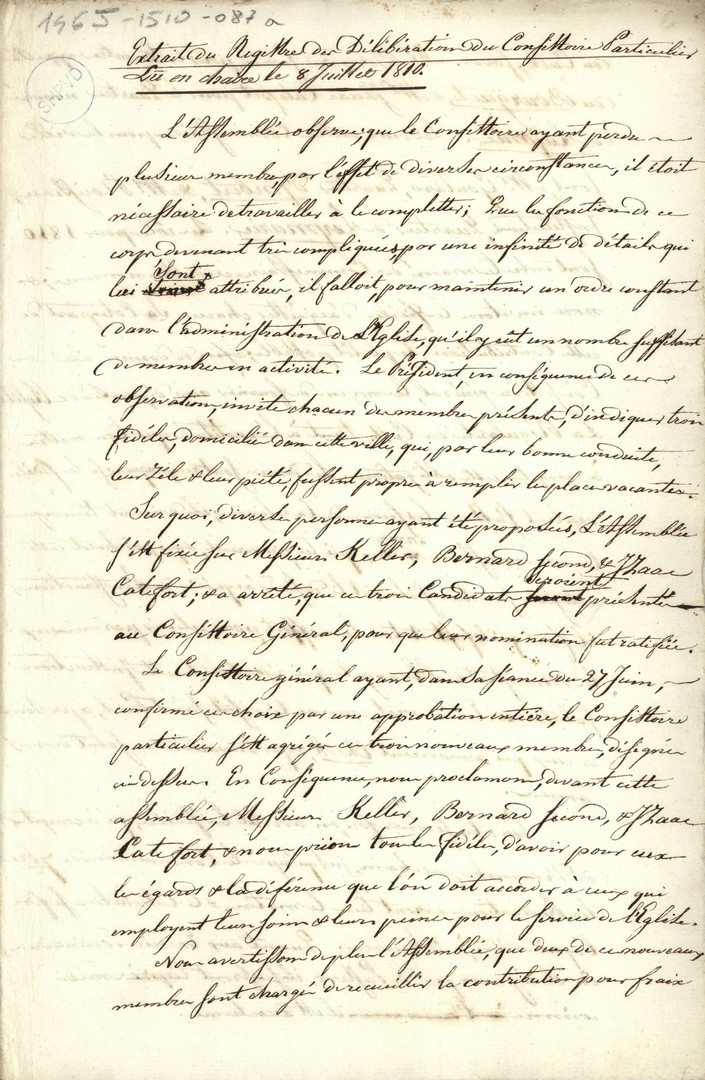 1965-1510-087a
SHPVD
Extrait du Registre des Délibération du Consistoire Particulier
Lû en chaire le 8 Juillet 1810.
L'Assemblée observe, que le Consistoire ayant perdu
plusieurs membres, par l'effet de diverses circonstances, il étoit
nécessaire de travailler à le completter; Que les fonctions de ce
corps devenant très compliquées, par une infinité de détails qui
Sont
lui attribués, il falloit, pour maintenir un ordre constant
dans l'administration de L'Eglise, qu'il y eût un nombre suffisant
de membres en activité. Le Président, en conséquence de ces
observations, invite chacun des membres présents, d'indiquer trois
fidèles, domiciliés dans cette ville, qui, par leur bonne conduite,
leur Zèle & leur piété, fussent propres à remplir les places vacantes.
Sur quoi, diverses personnes ayant été proposées, L'Assemblée
s'est fixée sur Messieurs Keller, Bernard second, & Izaac
Catefort; & a arrêté, que ces trois Candidats seroient présentés
au Consistoire Général, pour que leur nomination fut ratifiée.
Le Consistoire général ayant, dans sa séance du 27 Juin,
confirmé ces choix par une approbation entière, le Consistoire
particulier s'est agrégé ces trois nouveaux membres, désignés
ci-dessus. En Conséquence, nous proclamons, devant cette
assemblée, Messieurs Keller, Bernard second, & Izaac
Catefort, & nous prions tous les fidèles, d'avoir pour eux
les égards & la déférence que l'on doit accorder à ceux qui
employent leurs soins & leurs peines pour le service de l'Eglise.
Nous avertissons de plus l'Assemblée, que deux de ces nouveaux
membres sont chargés de recueillir la contribution pour fraix